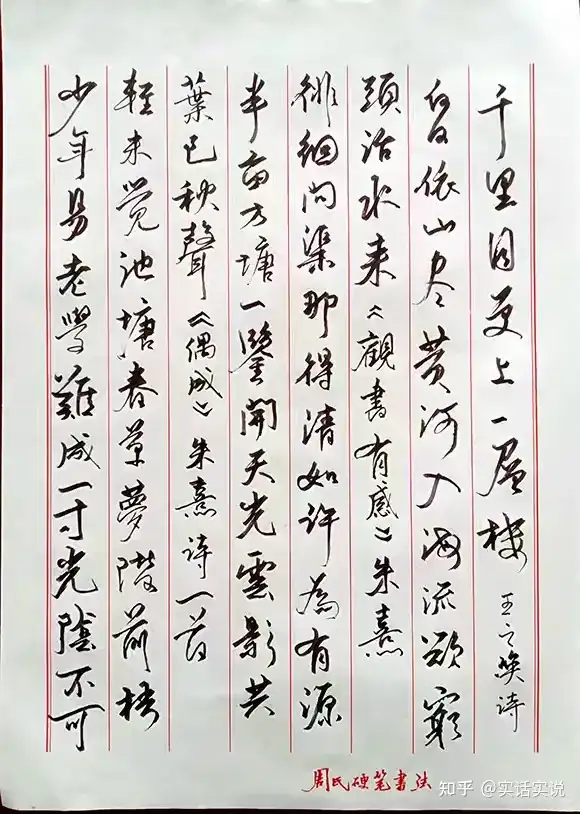 少年易老學難成一寸光陰不可
輕未觉池塘春草夢階前梧
葉已秋聲《偶成》朱熹诗一首
半亩方塘一鑒開天光雲影共
徘徊问渠那得清如许為有源
頭活水来《觀書有感》朱熹
白日依山尽黄河入海流欲窮
千里目更上一层楼 王之涣诗
周氏硬笔書法
知乎 @实话实说